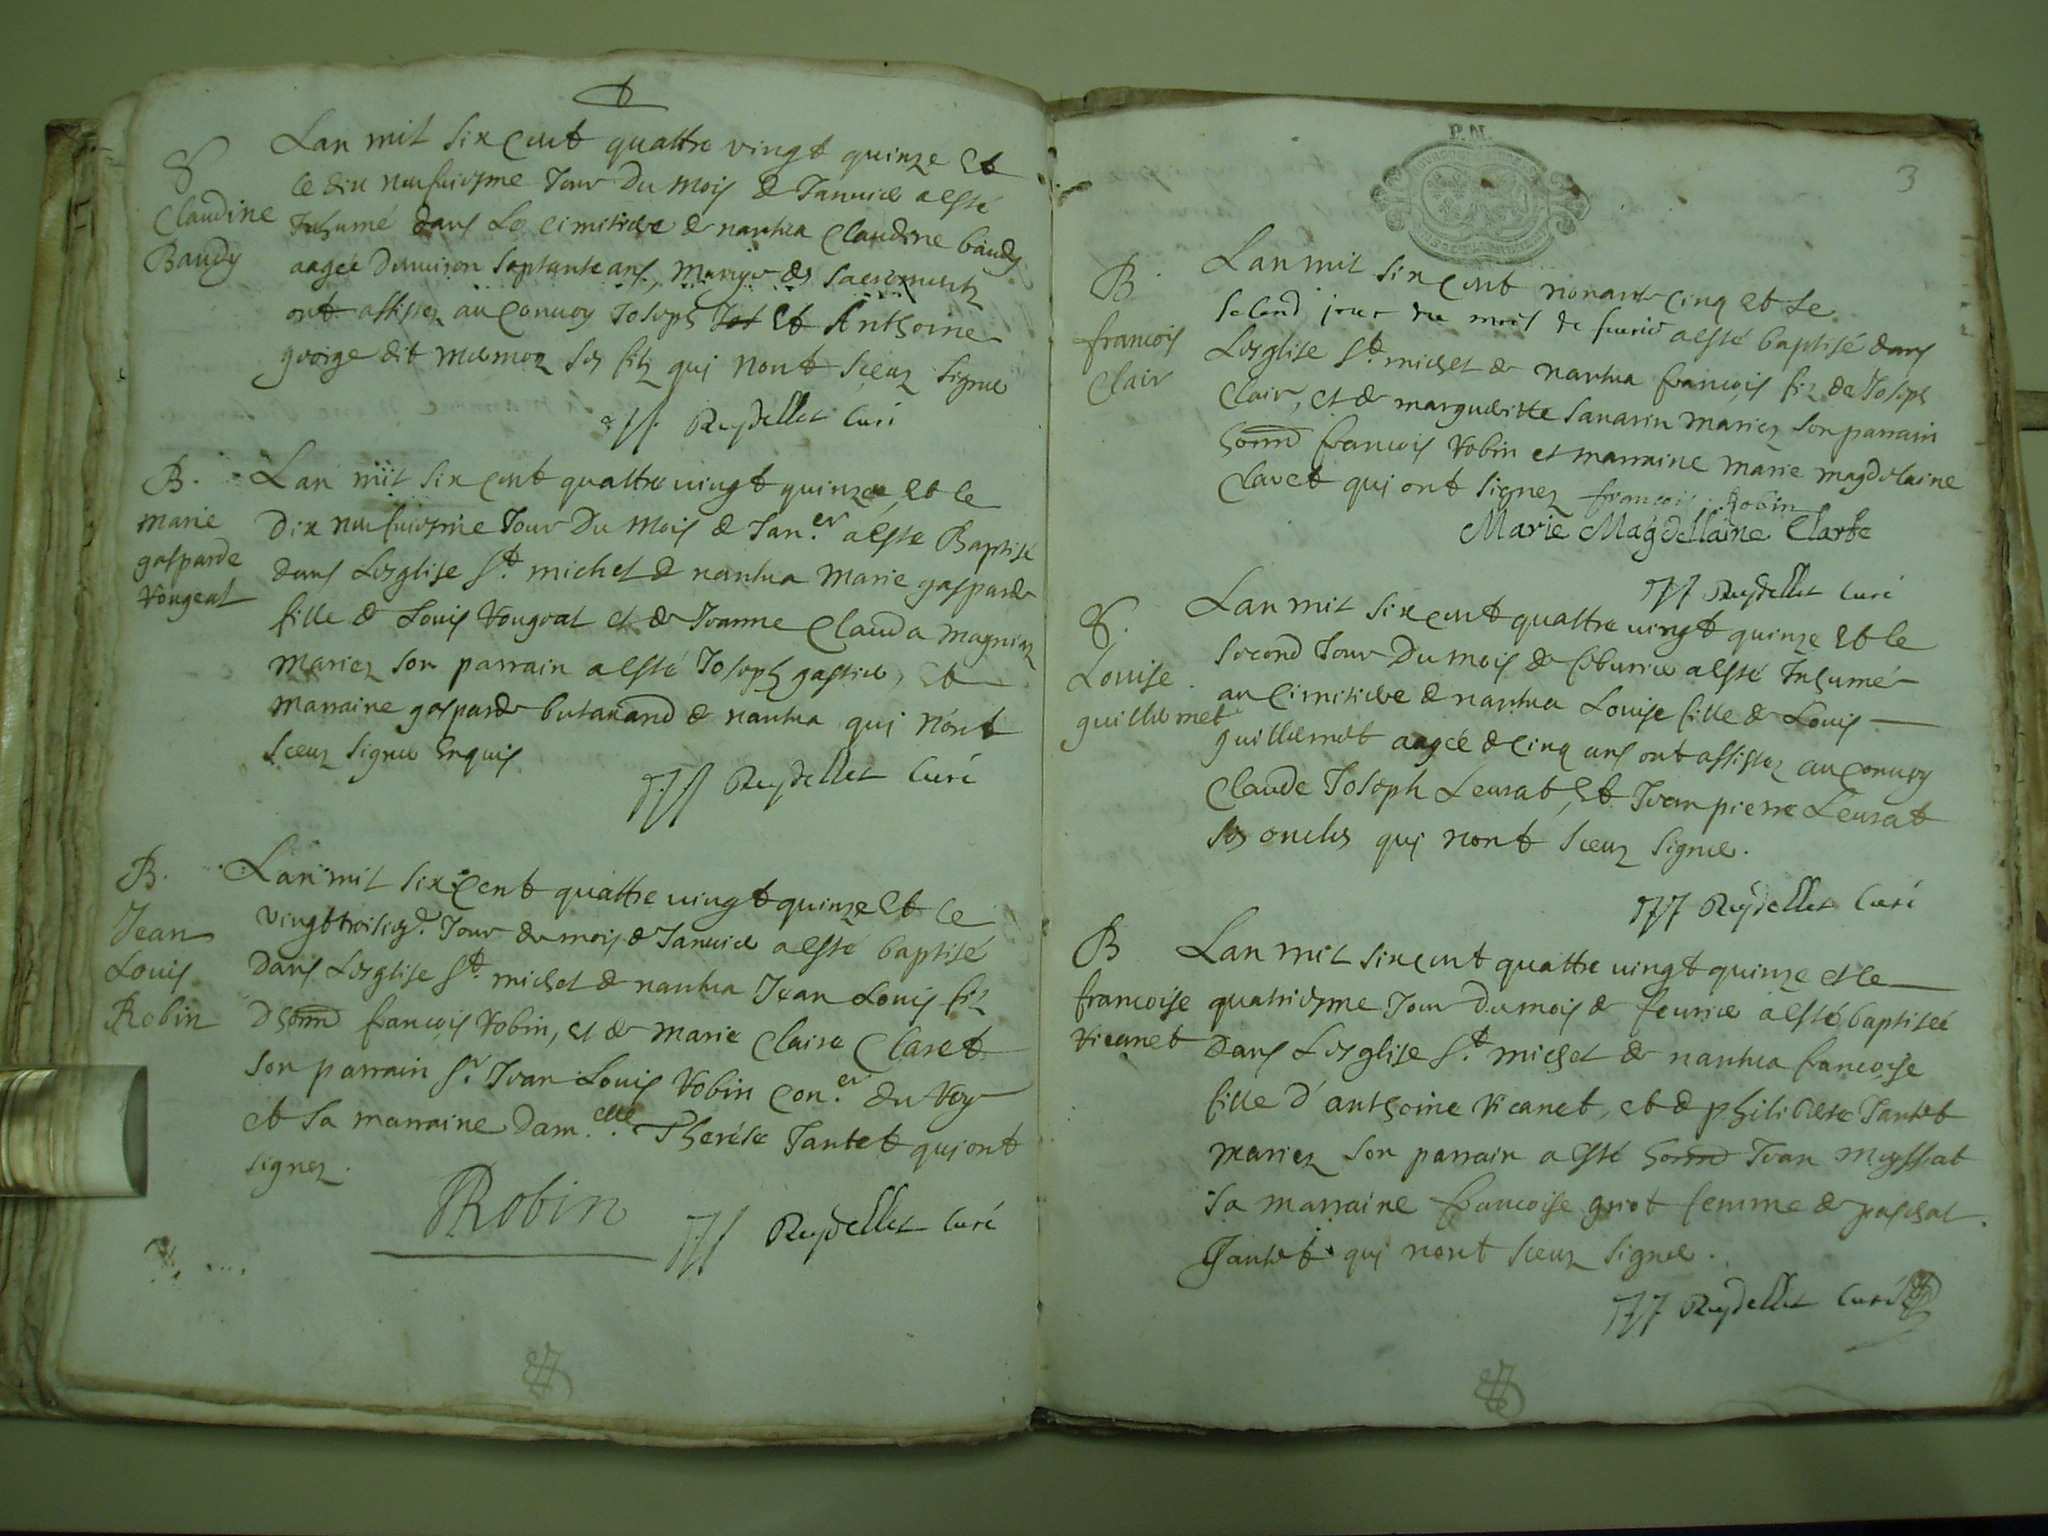 S
Claudine
Baudy
Lan mil six cent quattre vingt quinze Et
le dix neufuiesme Jour Du mois de Januier a esté
Inhumé dans Le cimitiere de nantua Claudine baudy
aagée Denuiron septante ans, munye des sacrements
ont assistez au Conuoy Joseph Et Anthoine
george dit mermoz ses filz qui nont sceuz signer
Reydellet Curé
B.
marie
gasparde
Vougeat
Lan mil six cent quattre uingt quinze, Et le
Dix neufuiesme Jour Du mois de Jan.er a esté Baptisé
dans Lesglise St. michel de nantua marie gasparde
fille de Louis Vougeat et de Jeanne Clauda magnin
mariez son parrain a esté Joseph gastier, Et
marraine gasparde butauand de nantua qui nont
sceuz signer Enquis
JJJ Reydellet Curé
B.
Jean
Louis
Robin
Lan mil six Cent quattre uingt quinze Et le
vingt troisies.e Jour du mois de Januier a esté baptisé
Dans Lesglise St. michel de nantua Jean Louis filz
D honn francois Robin, et de marie Claire Claret
son parrain Sr. Jean Louis Robin Con.er du Roy
et sa marraine Dam.elle Therése Jantet qui ont
signez.
Robin
JJJ Reydellet Curé
P.N.
3
B.
francois
Clair
Lan mil six cent nonante cinq et le
second jour du mois de feurier a esté baptisé dans
Lesglise St. michel de nantua francois filz de Joseph
Clair, et de margueritte sauarin mariez son parrain
honn francois Robin et marraine marie magdelaine
Claret qui ont signez francois Robin
Marie Magdellaine Clarte
JJJ Reydellet Curé
S.
Louise
guillermet
Lan mil six cent quattre uingt quinze Et le
second Jour Du mois de feburier a esté Inhumée
au Cimitiere de nantua Louise fille de Louis
guillermet aagée de Cinq ans ont assistez au Conuoy
Claude Joseph Leurat, Et Jean pierre Leurat
ses oncles qui nont sceuz signer.
JJJ Reydellet Curé
B
francoise
Vicanet
Lan mil six cent quattre uingt quinze et le
quatriesme Jour Du mois de feurier a esté baptisée
Dans Lesglise St. michel de nantua francoise
fille d'anthoine Vicanet, et de philiberte Jantet
mariez son parrain a esté honn Jean meyssat
sa marraine francoise griot femme de paschal
Jantet qui nont sceuz signer.
JJJ Reydellet Curé